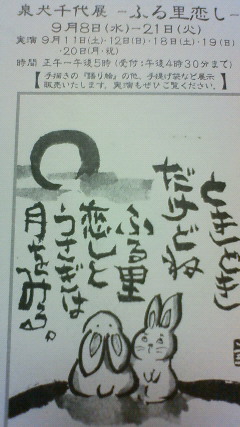 泉犬千代展 -ふる里恋し-
9月8日(水)-21日(火)
実演 9月11日(土)・12日(日)・18日(土)・19(日)
・20日(月・祝)
時間 正午~午後5時(受付:午後4時30分まで)
【手描きの『語り絵』の他、手提げ袋など展示
販売いたします。実演もぜひご覧ください。】
ときどき
だけどね
ふる里
恋しと
うさぎは
月をみる。